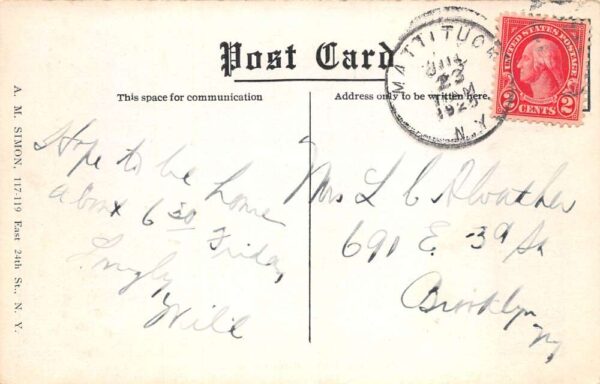 Post Card
This space for communication
Address only to be written here.
MATTITUCK
23
N.Y.
UNITED STATES POSTAGE
2 CENTS 2
Hope to be home
about 6 30 Friday
Will
Mrs L C
691 E. 39 St
Brooklyn
NY
A. M. SIMON, 117-119 East 24th St., N. Y.